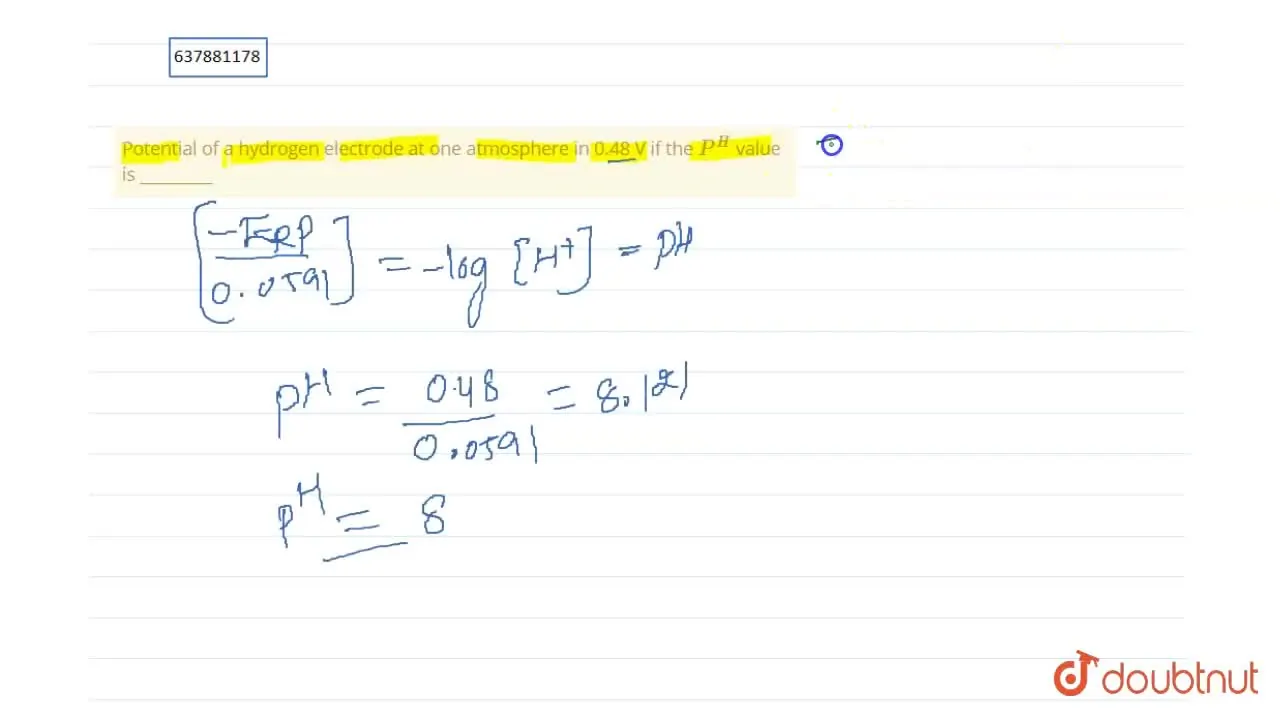 637881178
Potential of a hydrogen electrode at one atmosphere in 0.48 V if the P^H value
is ________
[-E_RP / 0.0591] = -log [H+] = pH
pH = 0.48 / 0.0591 = 8.121
p^H = 8
doubtnut